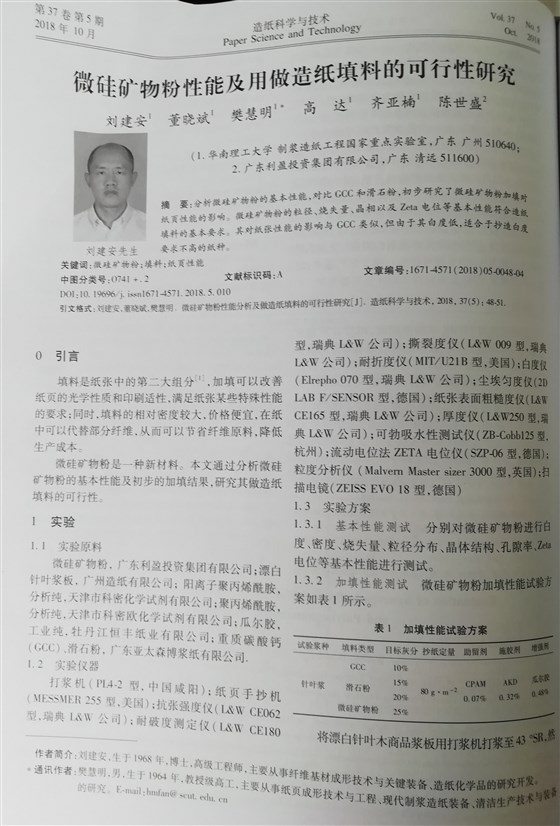 第37卷第5期
2018年10月
造纸科学与技术
Paper Science and Technology
Vol. 37 No. 5
Oct. 2018
微硅矿物粉性能及用做造纸填料的可行性研究
刘建安1 董晓斌1 樊慧明1* 高 达1 齐亚楠1 陈世盛2
(1. 华南理工大学 制浆造纸工程国家重点实验室,广东 广州 510640;
2. 广东利盈投资集团有限公司,广东 清远 511600)
刘建安先生
摘 要:分析微硅矿物粉的基本性能,对比GCC和滑石粉,初步研究了微硅矿物粉加填对
纸页性能的影响。微硅矿物粉的粒径、烧失量、晶相以及Zeta电位等基本性能符合造纸
填料的基本要求。其对纸张性能的影响与GCC类似,但由于其白度低,适合于抄造白度
要求不高的纸种。
关键词:微硅矿物粉;填料;纸页性能
中图分类号:O741+.2 文献标识码:A 文章编号:1671-4571(2018)05-0048-04
DOI:10.19696/j.issn1671-4571.2018.5.010
引文格式:刘建安,董晓斌,樊慧明. 微硅矿物粉性能分析及做造纸填料的可行性研究[J]. 造纸科学与技术,2018,37(5):48-51.
0 引言
填料是纸张中的第二大组分[1],加填可以改善
纸页的光学性质和印刷适性,满足纸张某些特殊性能
的要求;同时,填料的相对密度较大,价格便宜,在纸
中可以代替部分纤维,从而可以节省纤维原料,降低
生产成本。
微硅矿物粉是一种新材料。本文通过分析微硅
矿物粉的基本性能及初步的加填结果,研究其做造纸
填料的可行性。
1 实验
1.1 实验原料
微硅矿物粉,广东利盈投资集团有限公司;漂白
针叶浆板,广州造纸有限公司;阳离子聚丙烯酰胺,
分析纯,天津市科密化学试剂有限公司;聚丙烯酰胺,
分析纯,天津市科密欧化学试剂有限公司;瓜尔胶,
工业纯,牡丹江恒丰纸业有限公司;重质碳酸钙
(GCC)、滑石粉,广东亚太森博浆纸有限公司.
1.2 实验仪器
打浆机(PL4-2型,中国咸阳);纸页手抄机
(MESSMER 255型,美国);抗张强度仪(L&W CE062
型,瑞典L&W公司);耐破度测定仪(L&W CE180
型,瑞典L&W公司);撕裂度仪(L&W 009型,瑞典
L&W公司);耐折度仪(MIT/U21B型,美国);白度仪
(Elrepho 070型,瑞典L&W公司);尘埃匀度仪(2D
LAB F/SENSOR型,德国);纸张表面粗糙度仪(L&W
CE165型,瑞典L&W公司);厚度仪(L&W250型,瑞
典L&W公司);可勃吸水性测试仪(ZB-Cobb125型,
杭州);流动电位法ZETA电位仪(SZP-06型,德国);
粒度分析仪(Malvern Master sizer 3000型,英国);扫
描电镜(ZEISS EVO 18型,德国)
1.3 实验方案
1.3.1 基本性能测试 分别对微硅矿物粉进行白
度、密度、烧失量、粒径分布、晶体结构、孔隙率、Zeta
电位等基本性能进行测试。
1.3.2 加填性能测试 微硅矿物粉加填性能试验方
案如表1所示。
表1 加填性能试验方案
试验浆种 填料类型 目标灰分 抄纸定量 助留剂 施胶剂 增强剂
GCC 10%
针叶浆 滑石粉 15% 80 g·m-2 CPAM AKD 瓜尔胶
20% 0.07% 0.32% 0.48%
微硅矿物粉 25%
将漂白针叶木商品浆板用打浆机打浆至43 °SR,然
作者简介:刘建安,生于1968年,博士,高级工程师,主要从事纤维基材成形技术与关键装备、造纸化学品的研究开发。
* 通讯作者:樊慧明,男,生于1964年,教授级高工,主要从事纸页成形技术与工程、现代制浆造纸装备、清洁生产技术与装备
的研究。E-mail:hmfan@scut.edu.cn